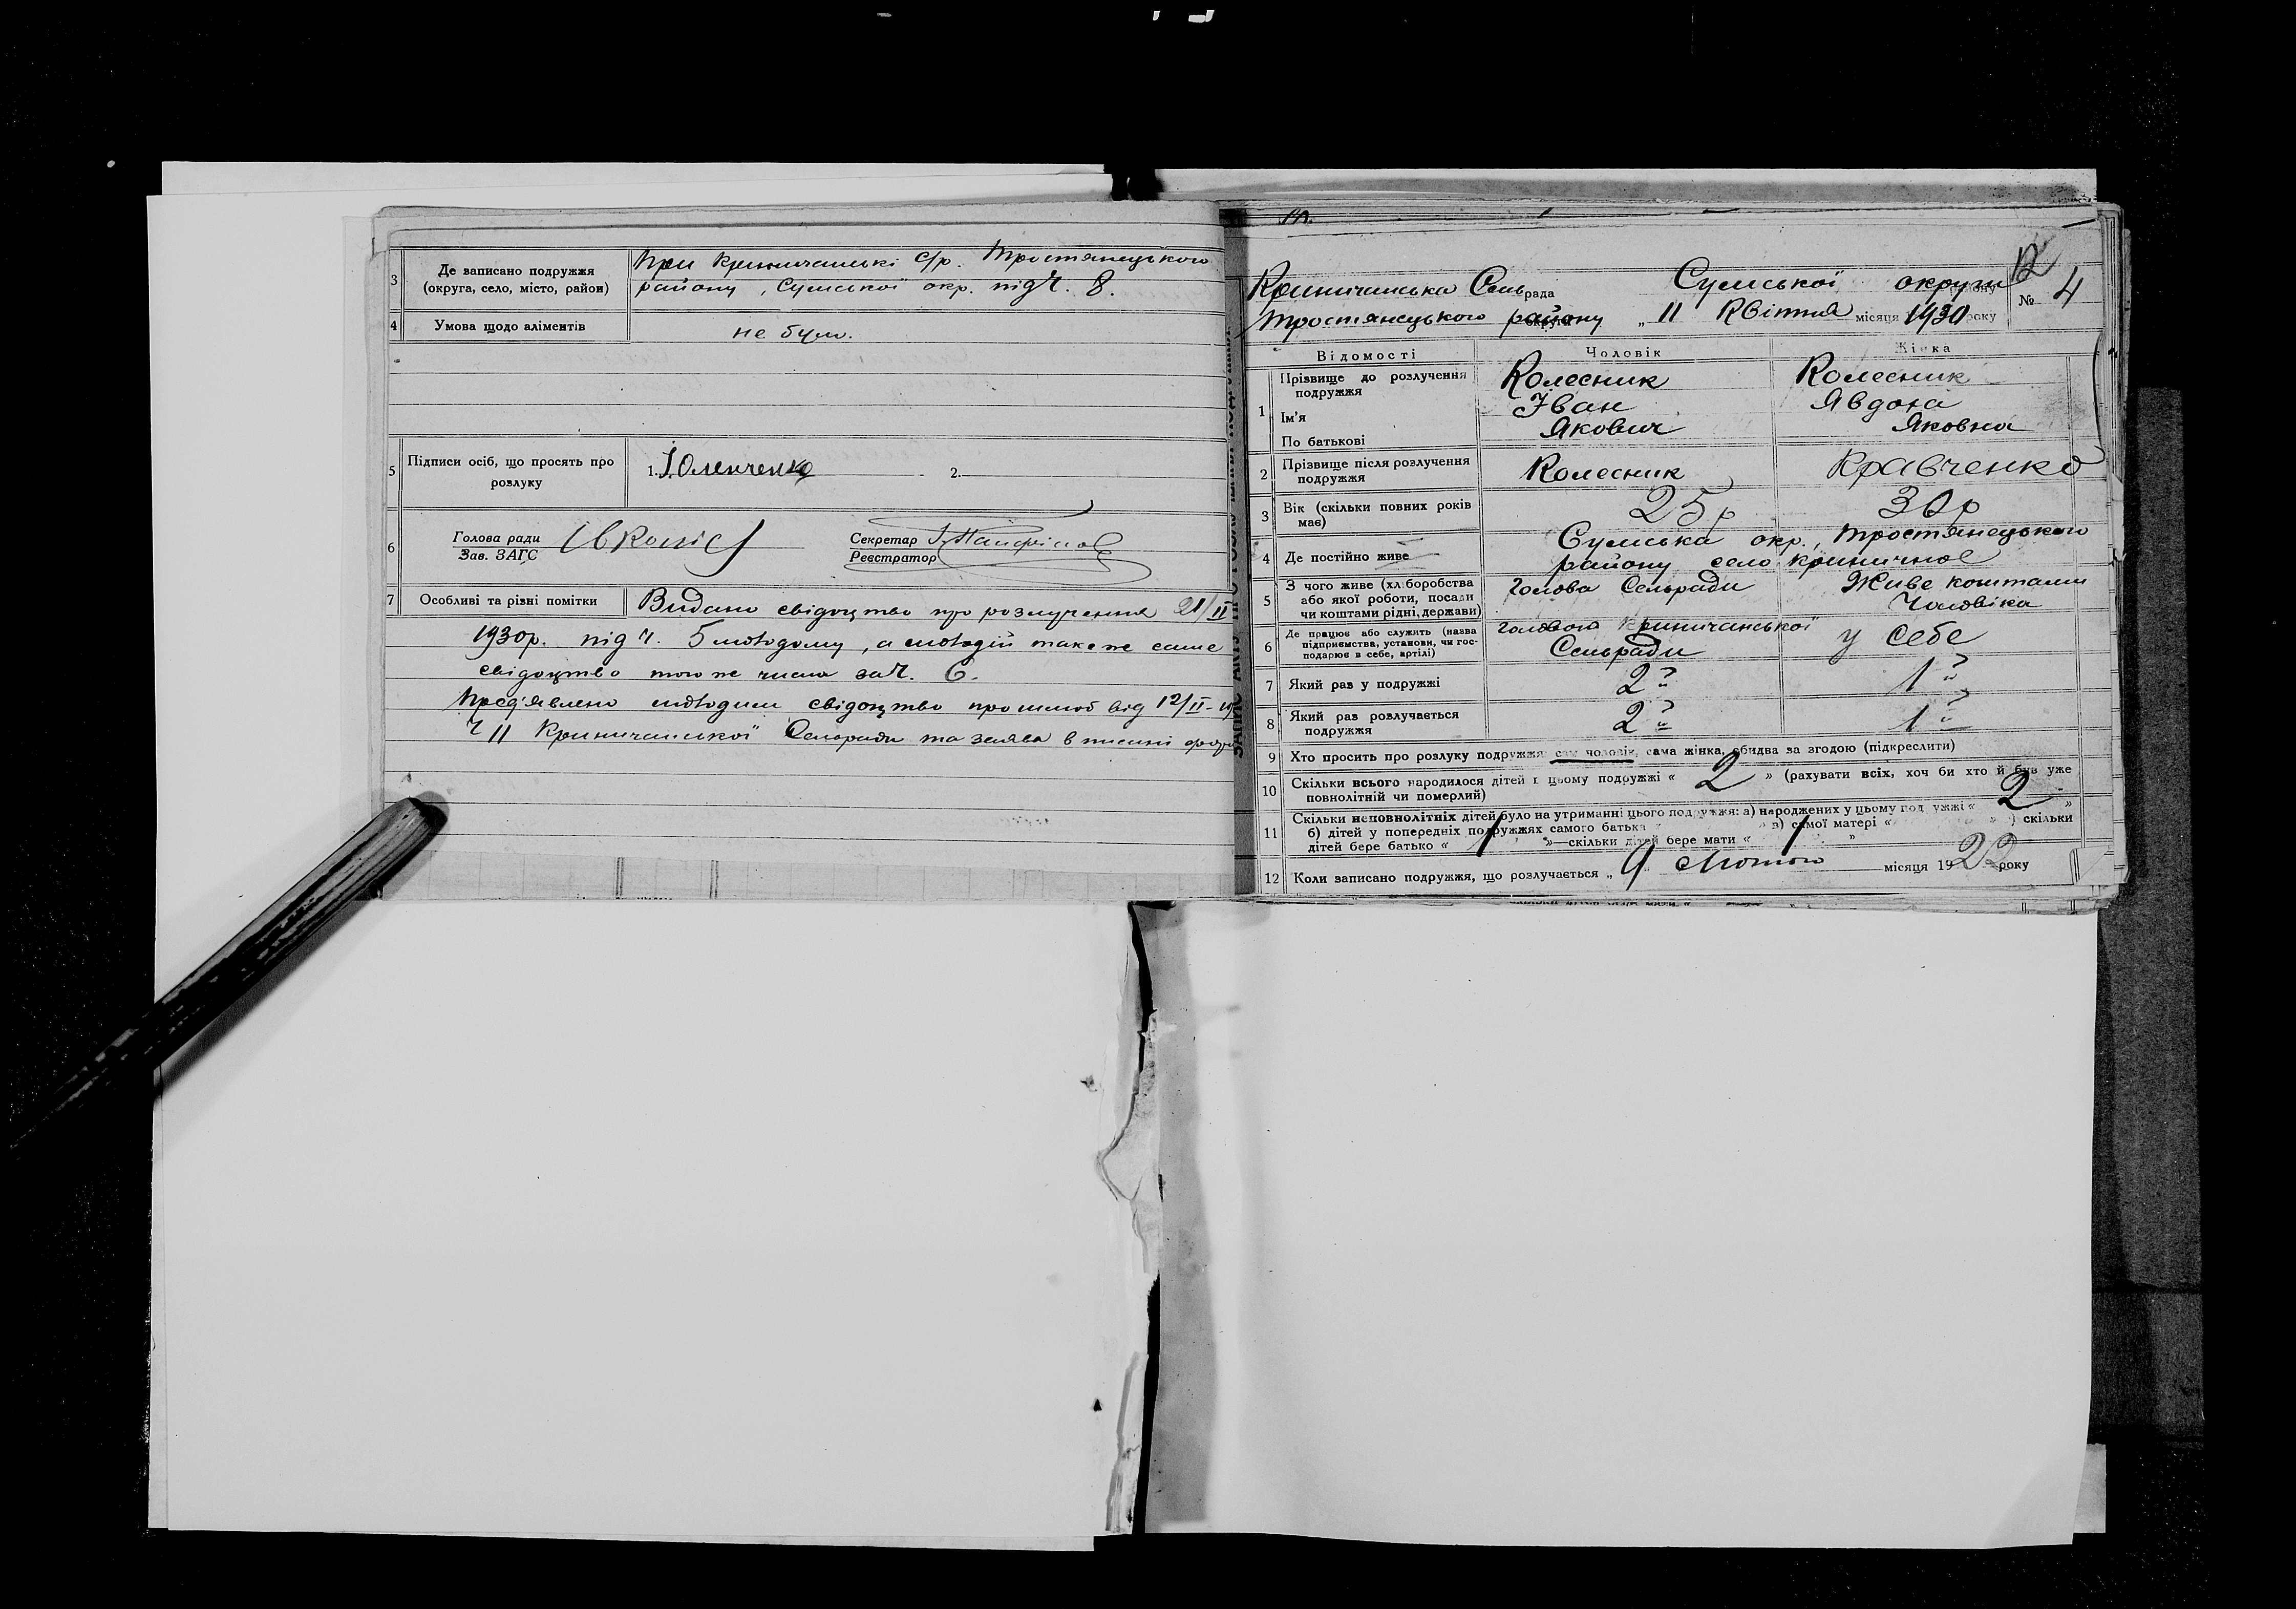 3 Де записано подружжя (округа, село, місто, район)
При Криничанські с/р. Тростянецького
району, Сумської окр. під Ч. 8.
4 Умова щодо аліментів не було.
5 Підписи осіб, що просять про розлуку 1. 2.
6 Голова ради
Зав. ЗАГС
Секретар
Реєстратор
7 Особливі та різні помітки Видано свідоцтво про розлучення 21/II
1930р. під Ч. 5 молодому, а молодій таке же саме
свідоцтво того же числа за Ч. 6.
Пред'явлено молодими свідоцтво про шлюб від 12/II-
Ч 11 Криничанської Сельради та заява в писмні
12
Криничанська Сельрада Сумської округи
№ 4
Тростянецького району „ 11 Квітня місяця 1930 року
Відомості Чоловік Жінка
1 Прізвище до розлучення подружжя Колесник Колесник
Ім'я Іван Явдоха
По батькові Якович Яковна
2 Прізвище після розлучення подружжя Колесник Кравченко
3 Вік (скільки повних років має) 25р 30р
4 Де постійно живе Сумська окр., Тростянецького
району село Криничное
5 З чого живе (хліборобства або якої роботи, посади чи коштами рідні, держави) Голова Сельради Живе коштами Чоловіка
6 Де працює або служить (назва підприємства, установи, чи господарює в себе, артілі) головою Криничанської Сельради у себе
7 Який раз у подружжі 2й 1й
8 Який раз розлучається подружжя 2й 1й
9 Хто просить про розлуку подружжя: сам чоловік, сама жінка, обидва за згодою (підкреслити)
10 Скільки всього народилося дітей в цьому подружжі « 2 » (рахувати всіх, хоч би хто й був уже
повнолітній чи померлий)
11 Скільки неповнолітніх дітей було на утриманні цього подружжя: а) народжених у цьому подружжі « 2 »
б) дітей у попередніх подружжях самого батька « » в) самої матері « » ) скільки
дітей бере батько « 1 »—скільки дітей бере мати « 1 »
12 Коли записано подружжя, що розлучається „ 9 Лютого місяця 192 року